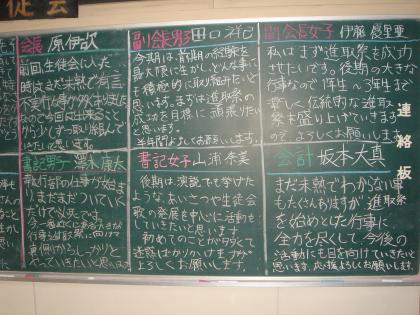 徒会
会長 原伊吹
前回生徒会に入った
時はまだ未熟で有言
不実行な事が多々ありました
ので今回反省すること
から少しずつ取り組んで
いきたいと思います。
副会長男子 田口祥己
今期は、前期の経験を
最大限に生かしどんな事に
も積極的に取り組みたいと
思います。まずは進取祭の
成功を目標に頑張りたい
と思います。
半年間よろしくお願いします。
副会長女子 伊藤優里亜
私はまず進取祭を成功
させたいです。後期の大きな
行事なので1年生〜3年生まで
楽しく伝統的な進取
祭を盛り上げていきます
ので、よろしくお願いします
連絡板
書記男子 澤木康大
執行部の仕事が始まり
まだまだついていく
だけで必死です。
行事は進取祭に向けて
裏側からしっかりと
書記女子 山浦奈美
後期は、演説でも挙げた
ような、あいさつや生徒会
歌の発展を中心に活動を
していきたいと思います
初めてのことが多くて
迷惑ばかりかけますが
よろしくお願いします。
会計 坂本大真
まだ未熟でわからない事
もたくさんありますが進取祭
を始めとした行事に
全力を尽くして、今後の
活動にも目を向けていきたいと
思います。応援よろしくお願いします。